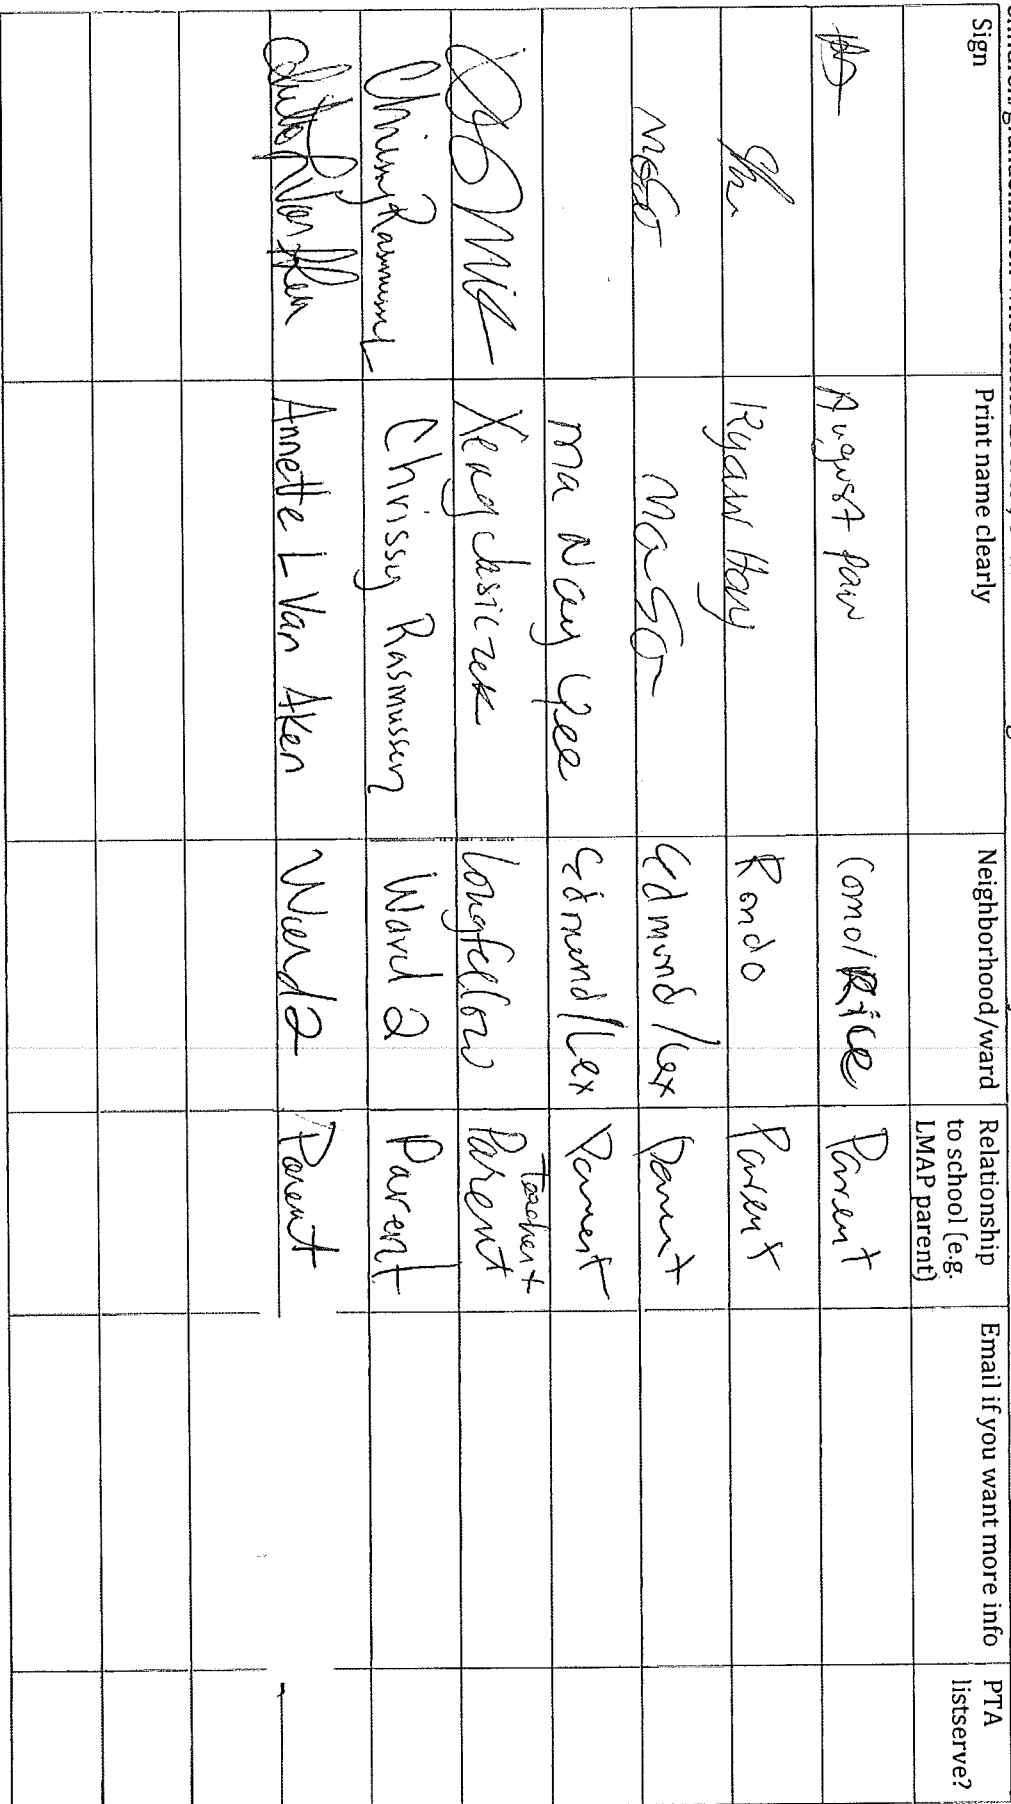 Sign Print name clearly Neighborhood/ward Relationship to school (e.g. LMAP parent) Email if you want more info PTA listserve?
August Paw Como/Rice Parent
Kyaw Hay Rondo Parent
MaSo MaSo Edmund/Lex Parent
Ma Nay Yee Edmund/Lex Parent
Longfellow Teacher + Parent
Chrissy Rasmussen Chrissy Rasmussen Ward 2 Parent
Annette L Van Aken Ward 2 Parent